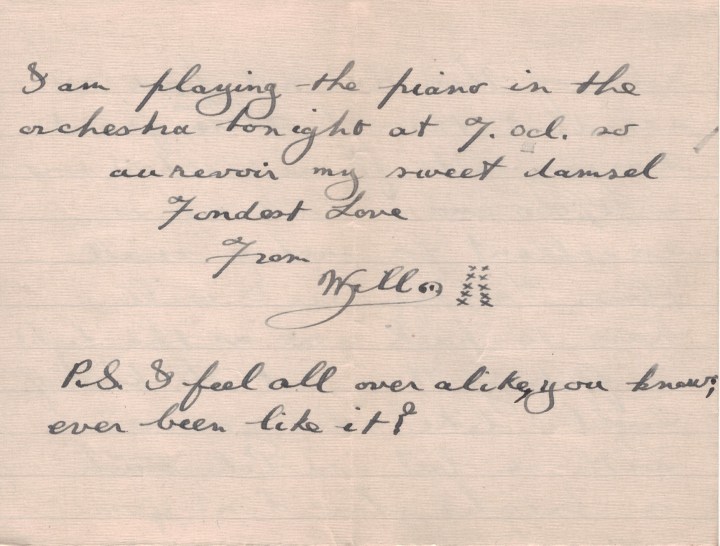 I am playing the piano in the
orchestra tonight at 7. ocl. so
au revoir my sweet damsel
Fondest Love
From
xx
xx
xx
xx
xx
P.S. I feel all over alike, you know;
ever been like it?